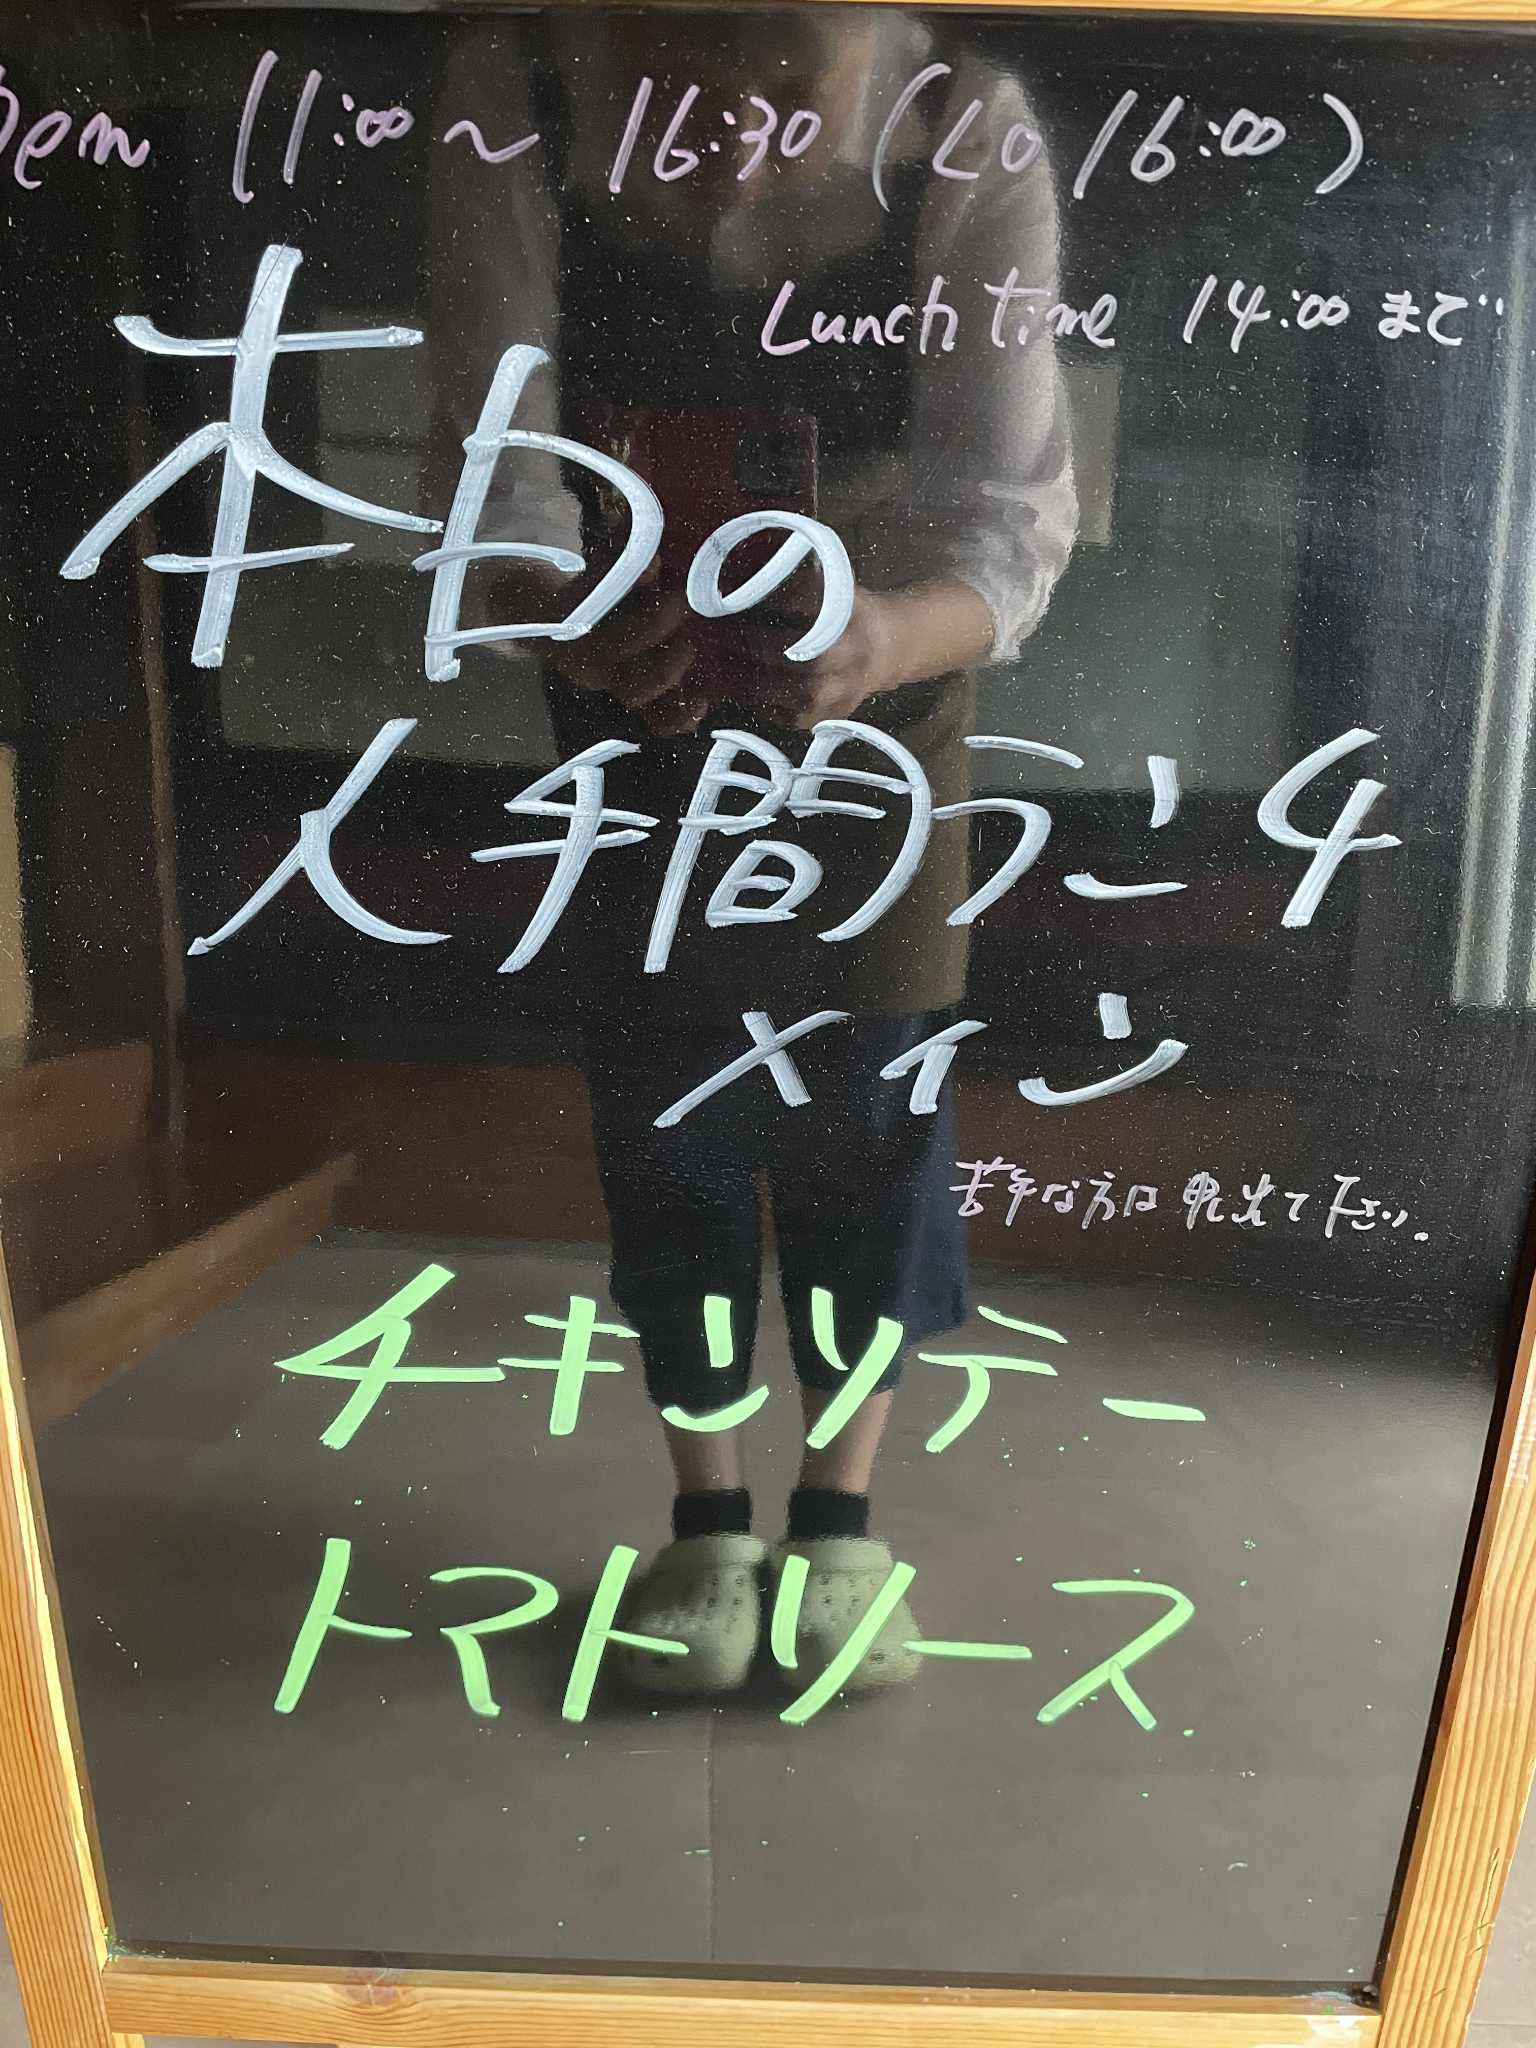 pen 11:00〜16:30(LO 16:00)
Lunch time 14:00まで
本日の
人手間ランチ
メイン
苦手な方は申出て下さい。
チキンソテー
トマトソース